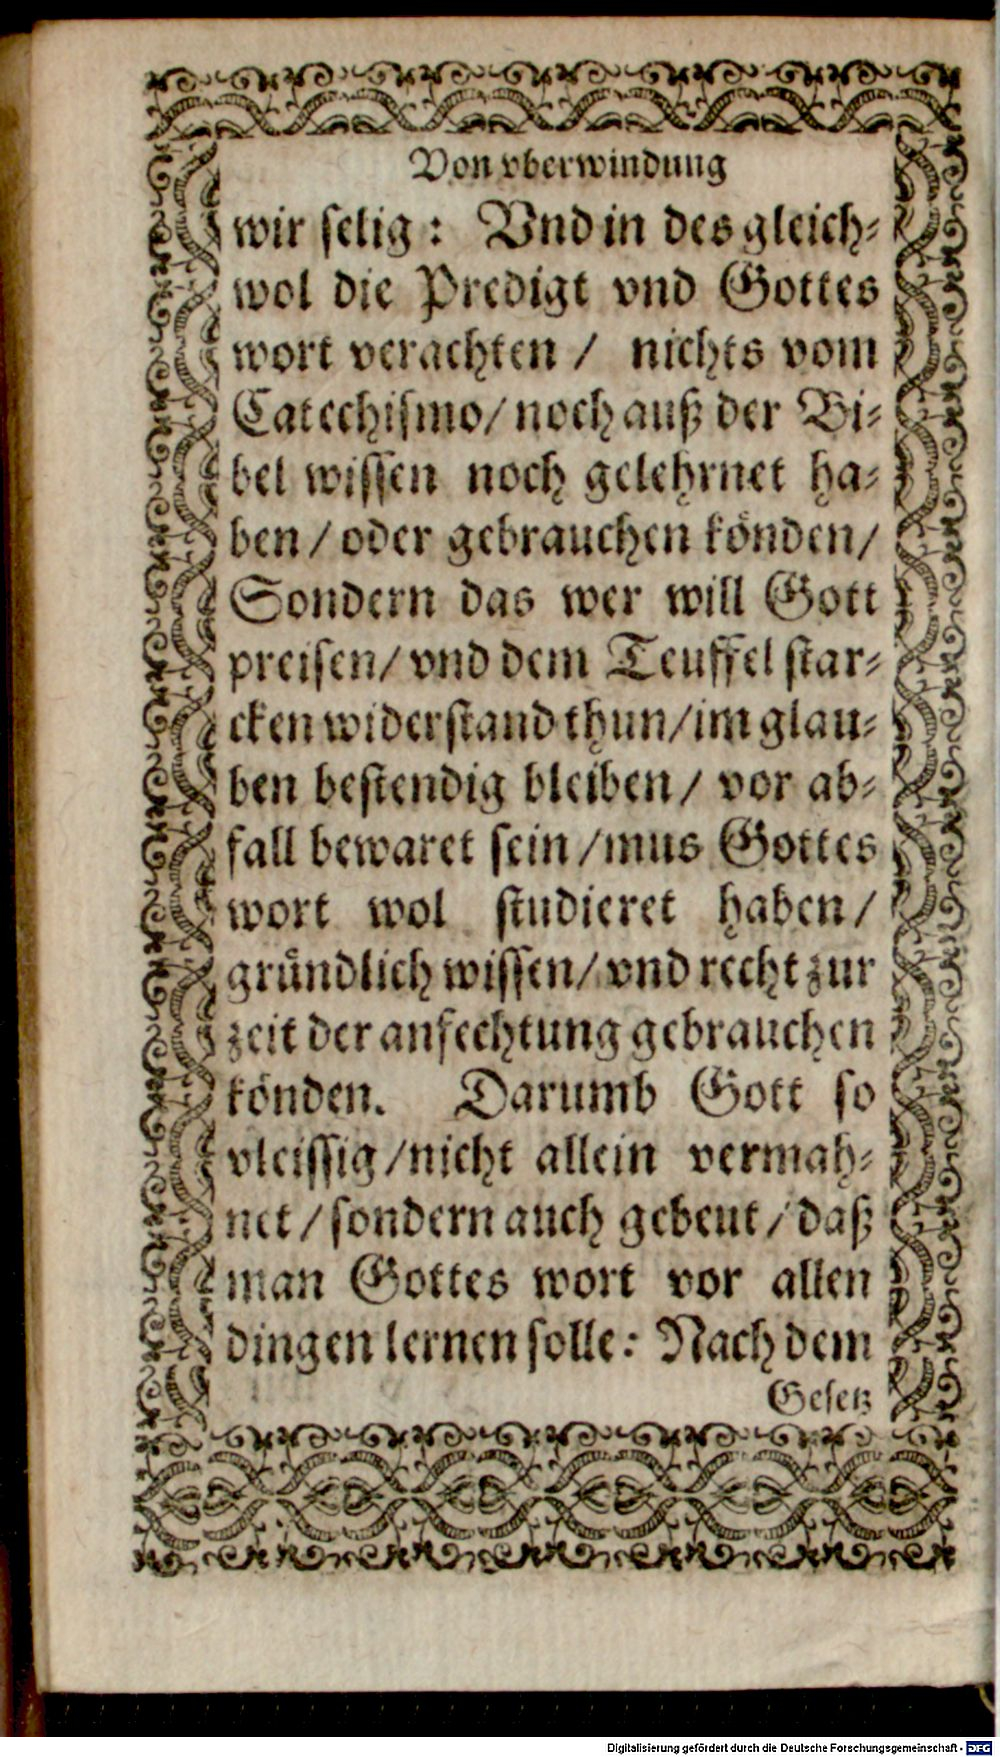 Von vberwindung
wir selig: Vnd in des gleich-
wol die Predigt vnd Gottes
wort verachten / nichts vom
Catechismo/ noch auß der Bi-
bel wissen noch gelehrnet ha-
ben / oder gebrauchen könden/
Sondern das wer will Gott
preisen/ vnd dem Teuffel star-
cken widerstand thun/ im glau-
ben bestendig bleiben / vor ab-
fall bewaret sein / mus Gottes
wort wol studieret haben/
gründlich wissen/ vnd recht zur
zeit der anfechtung gebrauchen
könden. Darumb Gott so
vleissig / nicht allein vermah-
net / sondern auch gebeut / daß
man Gottes wort vor allen
dingen lernen solle: Nach dem
Gesetz
Digitalisierung gefördert durch die Deutsche Forschungsgemeinschaft - DFG